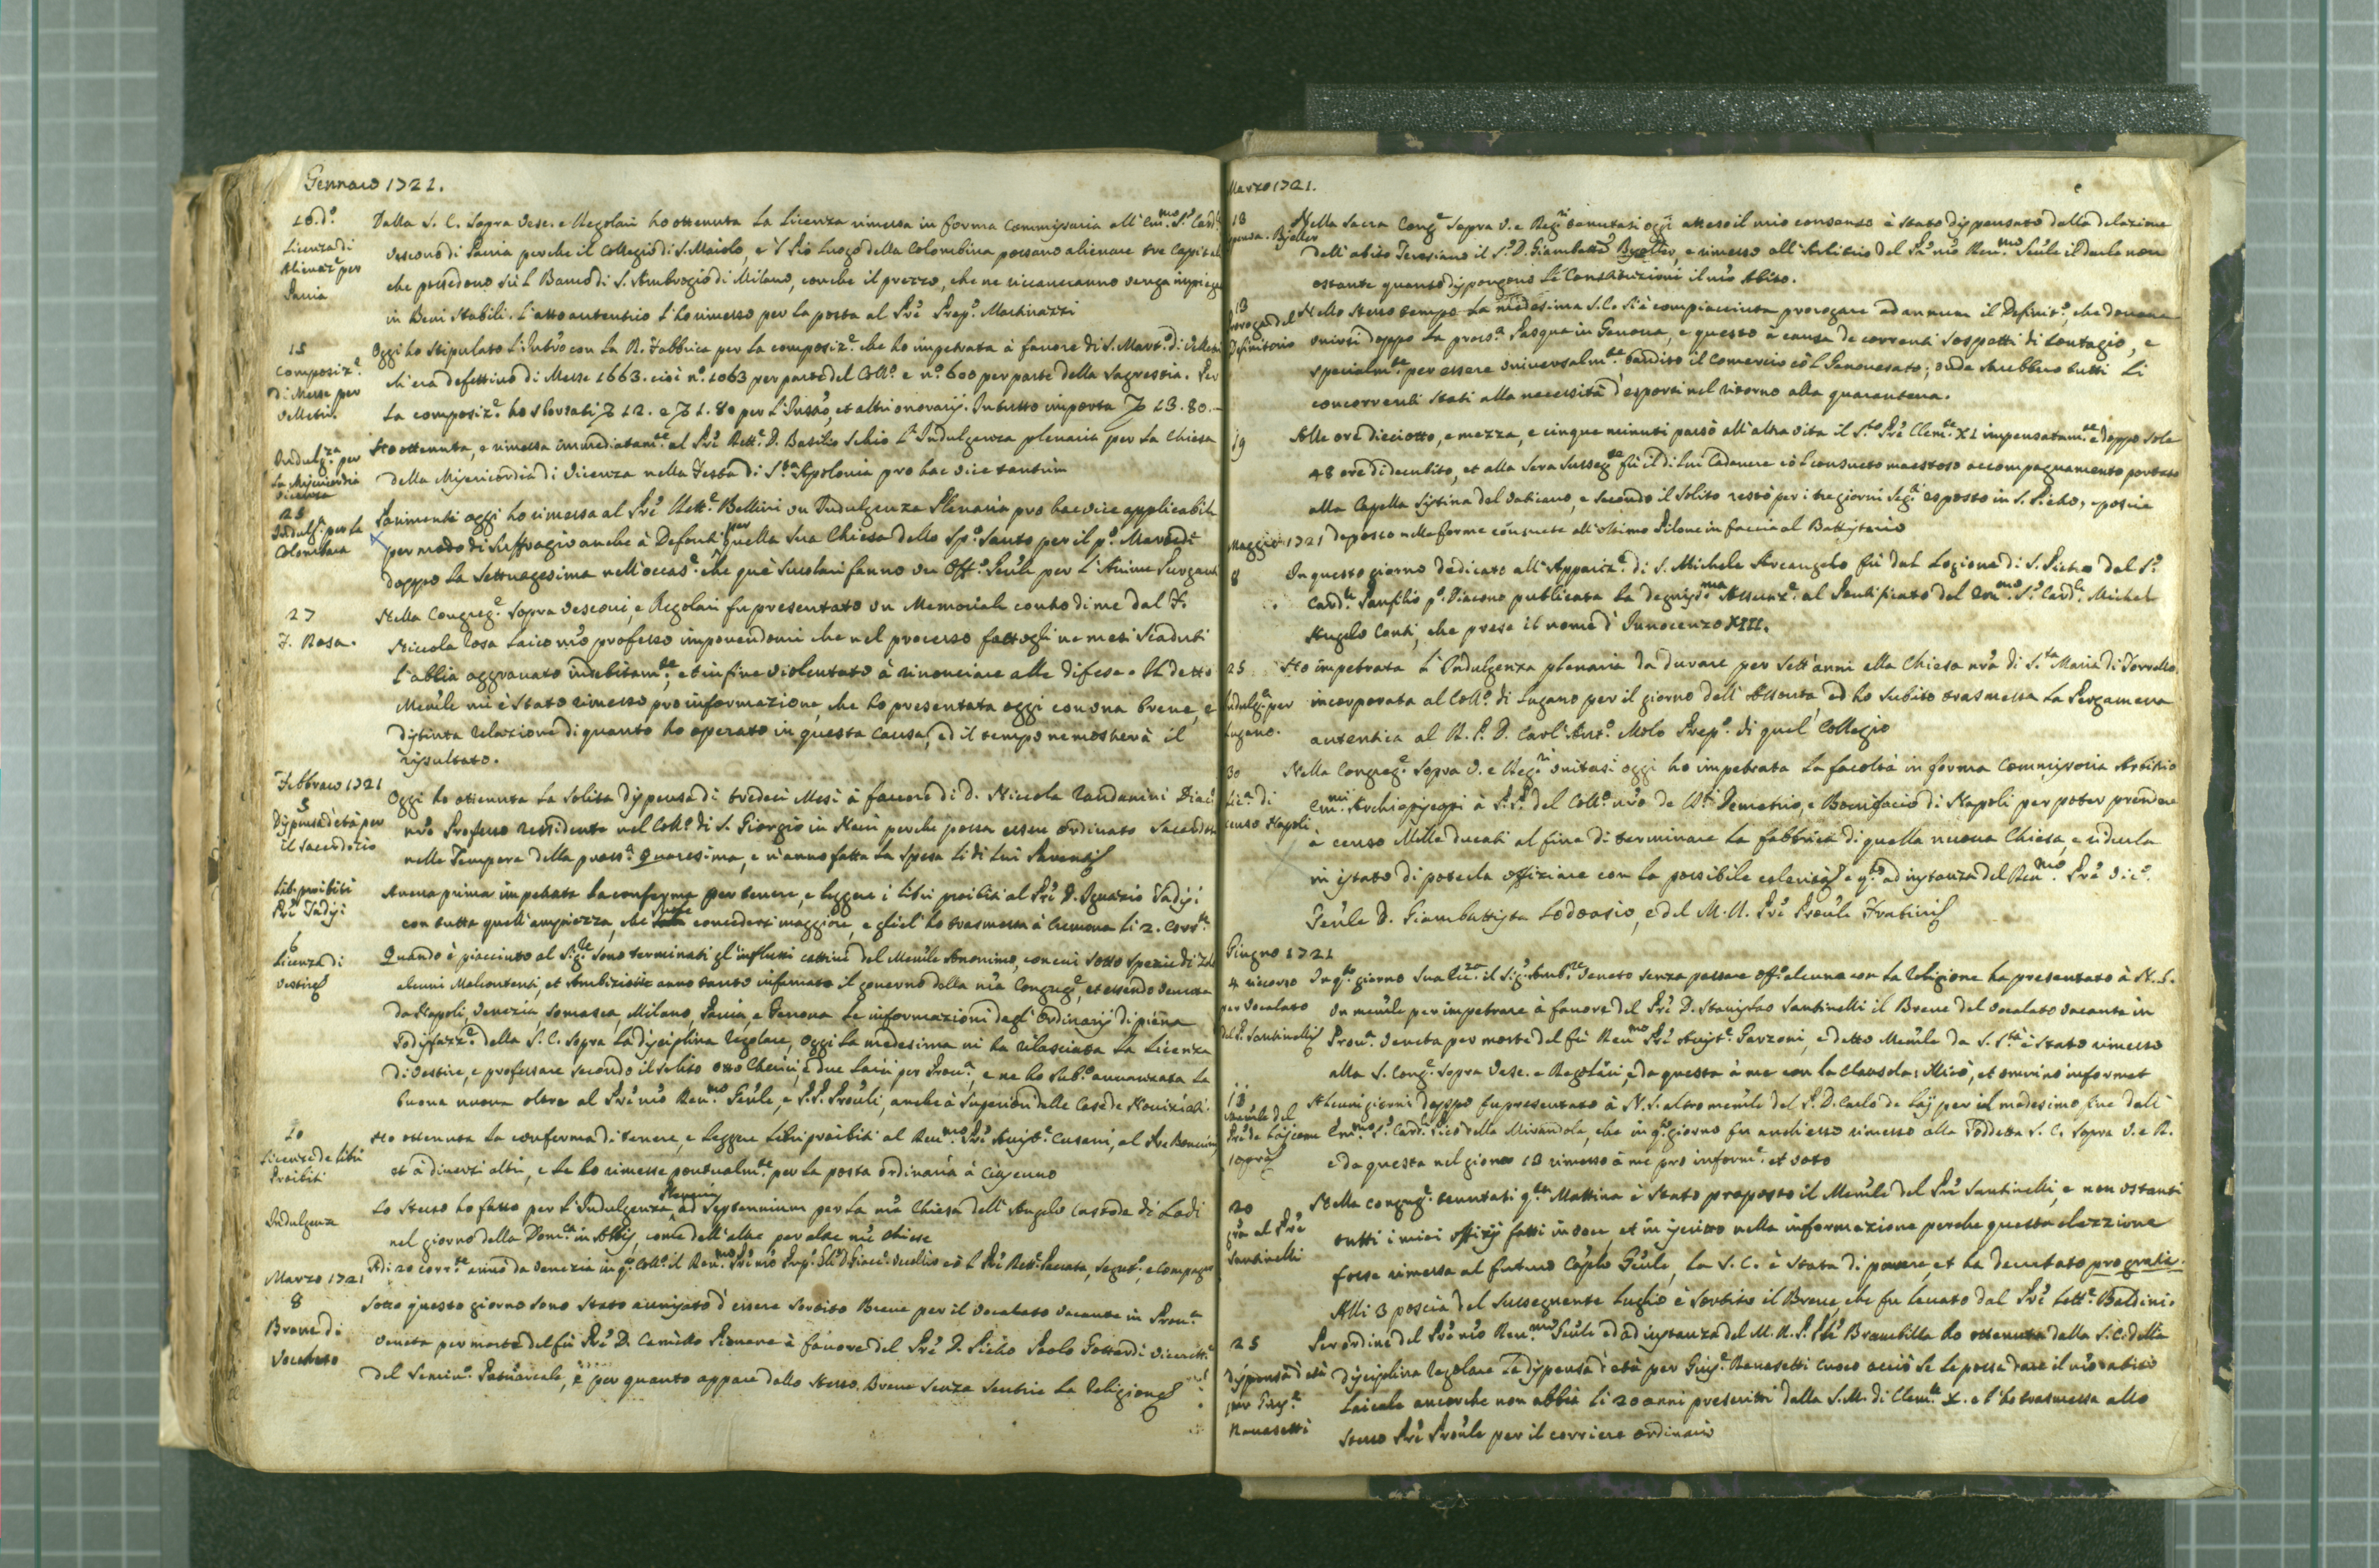 Gennaro 1721.
10. d.º
Licenza di
Alienaz.e per
Pavia
Dalla S. C. sopra Vesc. e Regolari ho ottenuta la licenza rimessa in forma Commissaria all' Em.mo S.r Card.
Vescovo di Pavia perche il Collegio di S. Maiolo, e 'l Pio luogo della Colombina possano alienare tre Capitali
che possedono sù 'l Banco di S. Ambrogio di Milano, con che il prezzo, che ne ricaveranno venga impieg
in Beni stabili. L'atto autentico l'ho rimesso per la posta al Prē Prep.º
15
Composiz.e
di Messe per
Velletri.
Oggi ho stipulato l' con la R. Fabbrica per la composiz.e che ho impetrata à favore di S. Mart.º di Velletri
ch'era defettivo di Messe 1663. cioè n.º 1063 per parte del Coll.º e n.º 600 per parte della Sagrestia. Per
la composiz.e ho sborsati 12. e 1. 80 per l' et altri onorarij. In tutto importa 13. 80.
Indulg.za per
la Misericordia
Vicenza
Ho ottenuta, e rimessa immediatam.te al Prē Rett.e D. Basilio Schio l'Indulgenza plenaria per la Chiesa
della Misericordia di Vicenza nella Festa di S.ta Apolonia pro hac vice tantùm
23
Indulg. per la
Colombina
Parimenti oggi ho rimessa al Prē Rett.e Bellini un Indulgenza Plenaria pro hac vice applicabile
per modo di suffragio anche à Defonti per quella sua Chiesa dello Sp.º Santo per il p.º Martedì
doppo la Settuagesima nell'occas.e che què Secolari fanno un Off.º Gen̄le per l'Anime Purganti
27
F. Rosa.
Nella Congreg.e sopra Vescovi, e Regolari fu presentato un Memoriale contro di me dal F.
Niccola Rosa laico nr̄o professo imponendomi che nel processo fattogli ne mesi scaduti
l'abbia aggravato indebitam.te, et in fine violentato à rinonciare alle difese. Il detto
Mem̄le mi è stato rimesso pro informazione, che ho presentata oggi con una breve, e
distinta relazione di quanto ho operato in questa causa, ed il tempo ne mostrerà il
risultato.
Febbraio 1721
5
Dispensa d'età per
il sacerdozio
Oggi ho ottenuta la solita dispensa di tredeci Mesi à favore di D. Niccola Diac.
nr̄o Professo residente nel Coll.º di S. Giorgio in perche possa essere ordinato Sacerdote
nelle Tempora della pross.a Quaresima, e n'anno fatta la spesa li di lui Parenti
Lib. proibiti
Prē Tadisi
Aveva prima impetrata la conferma per tenere, e leggere i libri proibiti al Prē D. Ignazio Tadisi
con tutta quell'ampiezza, che suole concedersi maggiore, e gliel' ho trasmessa à Cremona li 2. Corr.te
6
Licenza di
Vestire
Quando è piacciuto al Sig.re sono terminati gl'influssi cattivi del Mem̄le Anonimo, con cui sotto spezie di zelo
alcuni Malcontenti, et Ambiziosi anno tanto infamato il governo della nr̄a Congreg.e, et essendo venute
da Napoli, Venezia Somasca, Milano, Pavia, e Verona le informazioni degl' Ordinarij di piena
sodisfazz.e della S. C. sopra la disciplina regolare, oggi la medesima mi ha rilasciata la Licenza
di vestire, e professare secondo il solito otto Cherici, e due Laici per Prov.a, e ne ho sub.º avanzata la
buona nuova oltre al Prē nr̄o Rev.mo Gen̄le, e P.P. Prov̄li, anche à Superiori delle Case de Noviziati.
10
Licenze de Libri
Proibiti
Ho ottenuta la conferma di tenere, e leggere Libri proibiti al Rev.mo Prē Assist.e Cusani, al Prē
et à diversi altri, e le ho rimesse pontualm.te per la posta ordinaria à Ciascuno
Indulgenza
Lo stesso ho fatto per l'Indulgenza Plenaria ad Septennium per la nr̄a Chiesa dell'Angelo Custode di Lodi
nel giorno della Dom.ca in Albis, come dell'altre per altre nr̄e Chiese
Adi 20 corr.te arrivò da Venezia in q.º Coll.º il Rev.mo Prē nr̄o Prep. Gl̄e D. Giac. Vecellio cō l Prē Rett.e Segret.º, e Compagni
Marzo 1721
8
Breve di
Vocalato
Sotto questo giorno sono stato avvisato d'essere sortito Breve per il Vocalato vacante in Prov.a
Veneta per morte del fù Prē D. Camillo à favore del Prē D. Pietro Paolo Gottardi Vicerett.e
del Semin.º Patriarcale, e per quanto appare dallo stesso Breve senza sentire la Religione
Marzo 1721.
13
Nella Sacra Cong.e sopra V. e Reg.ri tenutasi oggi atteso il mio consenso è stato dispensato dalla delazione
dell'abito Teresiano il S.r D. Giambatta , e rimesso all'Arbitrio del Prē nr̄o Rev.mo Gen̄le il darle non
ostante quanto dispongono le Constituzioni il nr̄o Abito.
13
Proroga del
Definitorio
Nello stesso tempo la medesima S. C. si è compiacciuta prorogare ad annum il Definit.º, che doveva
unirsi doppo la pross.a Pasqua in Genova, e questo à causa de correnti sospetti di Contagio, e
specialm.te per essere universalm.te bandito il Comercio cō l Genovesato; onde sarebbero tutti li
concorrenti stati alla necessità d'esporsi nel ritorno alla quarentena.
19
Alle ore diciotto, e mezza, e cinque minuti passò all'altra vita il S.to Prē Clem.te XI impensatam.te e doppo sole
48 ore di decubito, et alla sera susseg.te fù il di lui Cadavere cō l consueto maestoso accompagnamento portato
alla Capella Sistina del Vaticano, e secondo il solito restò per i tre giorni seg.ti esposto in S. Pietro, e poscia
deposto nelle forme consuete all'ultimo Pilone in faccia al Battisterio
Maggio 1721
8
In questo giorno dedicato all'Appariz.e di S. Michele Arcangelo fù dal Logione di S. Pietro dal S.r
Card.le Panfilio p.º Diacono publicata la degnissi.ma Assunz.e al Pontificato del Em.mo S.r Card.le Michel
Angelo Conti, che prese il nome d'Innocenzo XIII.
25
Indulg. per
Lugano.
Ho impetrata l'Indulgenza plenaria da durare per sett'anni alla Chiesa nr̄a di S.ta Maria di Torrello
incorporata al Coll.º di Lugano per il giorno dell'Assunta, ed ho subito trasmessa la Pergamena
autentica al R. P. D. Carl'Ant.º Molo Prep.º di quel Collegio
30
Lic.a di
censo Napoli
Nella Congreg.e sopra V. e Reg.ri unitasi oggi ho impetrata la facoltà in forma Commissaria Arbitrio
Em.mi Archiepiscopi à P.P. del Coll.º nr̄o de SS.ti Demetrio, e Bonifacio di Napoli per poter prendere
a censo Mille ducati al fine di terminare la fabbrica di quella nuova Chiesa, e ridurla
in istato di poterla offiziare con la possibile celerità, e q.to ad instanza del Rev.mo Prē Vic.º
Gen̄le D. Giambattista Lodovasio, e del M. R. Prē Prov̄le
Giugno 1721
4 ricorso
per Vocalato
del P. Santinelli
In q.to giorno Sua Ecc.za il Sig.r Amb.re Veneto senza passare off.º alcuno con la Religione ha presentato à N. S.
un mem̄le per impetrare à favore del Prē D. Stanislao Santinelli il Breve del Vocalato vacante in
Prov.a Veneta per morte del fù Rev.mo Prē Assist.e Garzoni, e detto Mem̄le da S. S.tà è stato rimesso
alla S. Cong.e sopra Vesc. e Regolari, e da questa à me con la Clausola: Illicò, et omninò informet
13
Mem̄le del
Prē de Laj come
sopra
Alcuni giorni doppo fu presentato à N. S. altro mem̄le del P. D. Carlo de Laj per il medesimo fine dall'
Em.mo S.r Card.le Pico della Mirandola, che in q.to giorno fu anch'esso rimesso alla soddetta S. C. sopra V. e R.
e da questa nel giorno 13 rimesso à me pro inform.e et voto
20
gr̄a al Prē
Santinelli
Nella Congreg.e tenutasi q.ta Mattina è stato proposto il Mem̄le del Prē Santinelli, e non ostanti
tutti i miei offizij fatti in voce, et in iscritto nella informazione perche questa elezzione
fosse rimessa al futuro Cap̄lo Gen̄le, la S. C. è stata di parere, et ha decretato pro gratia.
Alli 3 poscia del susseguente Luglio è sortito il Breve, che fu levato dal Prē Lett.e Baldini.
25
Dispensa d'età
per Gius.e
Ramasetti
Per ordine del Prē nr̄o Rev.mo Gen̄le ed ad instanza del M. R. P. Brambilla ho ottenuta dalla S. C. della
disciplina regolare la dispensa d'età per Gius.e Ramasetti Cuoco acciò se le possa dare il nr̄o abito
laicale ancorche non abbia li 20 anni prescritti dalla S. M. di Clem.te X. e l'ho trasmessa allo
stesso Prē Prov̄le per il corriere ordinario